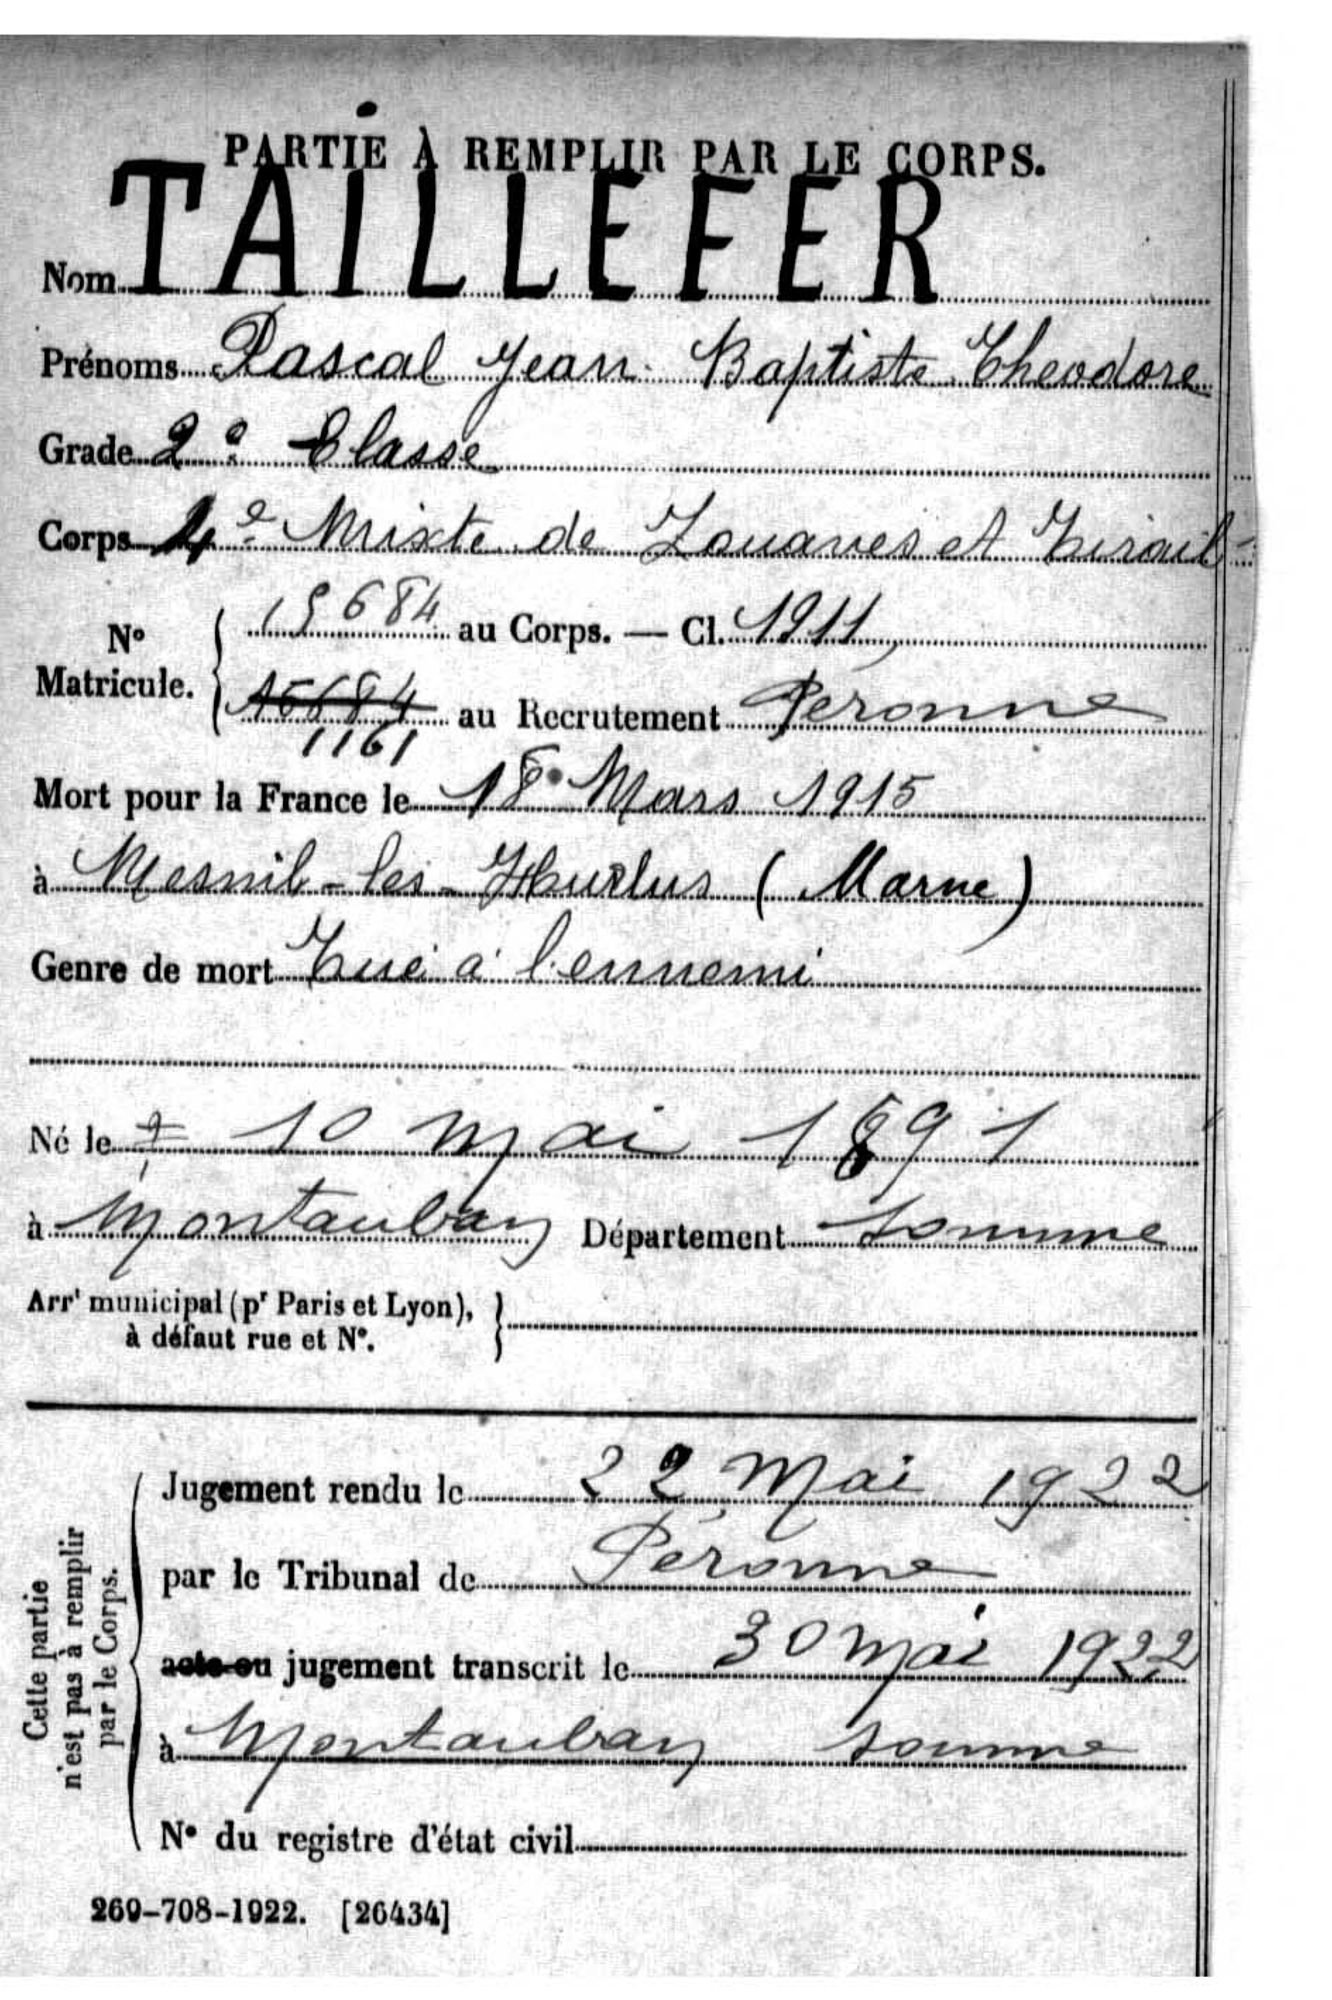 PARTIE À REMPLIR PAR LE CORPS.
Nom TAILLEFER
Prénoms Pascal Jean Baptiste Theodore
Grade 2e Classe
Corps 4e Mixte de Zouaves et Tirail-
N° Matricule. { 15684 au Corps. — Cl. 1911
15684 au Recrutement Péronne
1161
Mort pour la France le 18 Mars 1915
à Mesnil-les-Hurlus (Marne)
Genre de mort Tué à l'ennemi
Né le 10 mai 1891
à Montauban Département Somme
Arrt municipal (pr Paris et Lyon), }
à défaut rue et N°.
Cette partie n'est pas à remplir par le Corps.
Jugement rendu le 22 Mai 1922
par le Tribunal de Péronne
acte ou jugement transcrit le 30 mai 1922
à Montauban Somme
N° du registre d'état civil
269-708-1922. [26434]